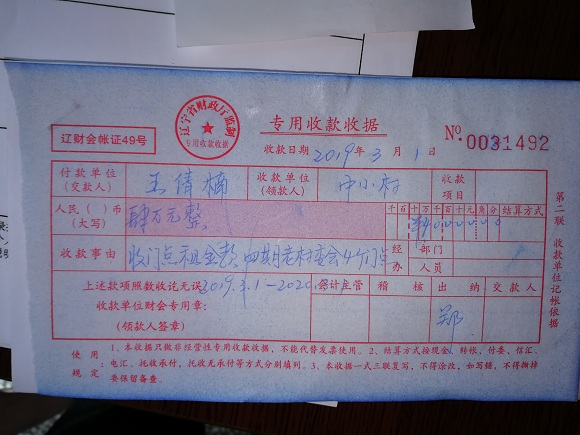 辽宁省财政厅监制
专用收款收据
辽财会帐证49号
专用收款收据
No. 0031492
收款日期 2019年3月1日
付款单位(交款人) 王倩楠 收款单位(领款人) 中小村 收款项目
人民( )币(大写) 肆万元整 千百十万千百十元角分 结算方式
¥4000000
收款事由 收门点租金款, 四期老村委会4个门点 经办 部门 人员
上述款项照数收讫无误 2019.3.1-2020. 会计主管 稽核 出纳 交款人
收款单位财会专用章:
(领款人签章) 郑
第二联 收款单位记帐依据
使用规定:1、本收据只做非经营性专用收款收据,不能代替发票使用。2、结算方式按现金、转帐,付委,信汇、
电汇、托收承付,托收无承付等方式分别填列。3、本收据一式三联复写,不得涂改,如写错,不得撕掉
要保留备查。